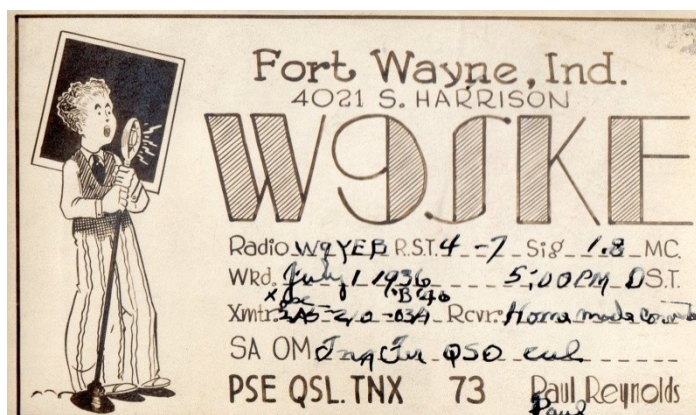 Fort Wayne, Ind.
4021 S. HARRISON
W9SKE
Radio W9YEB R.S.T. 4-7 Sig 1.8 MC.
Wrd. July 1 1936 5:00 PM D.S.T.
Xmtr. Rcvr: Home made
SA OM QSO cul
PSE QSL. TNX 73 Paul Reynolds
Paul